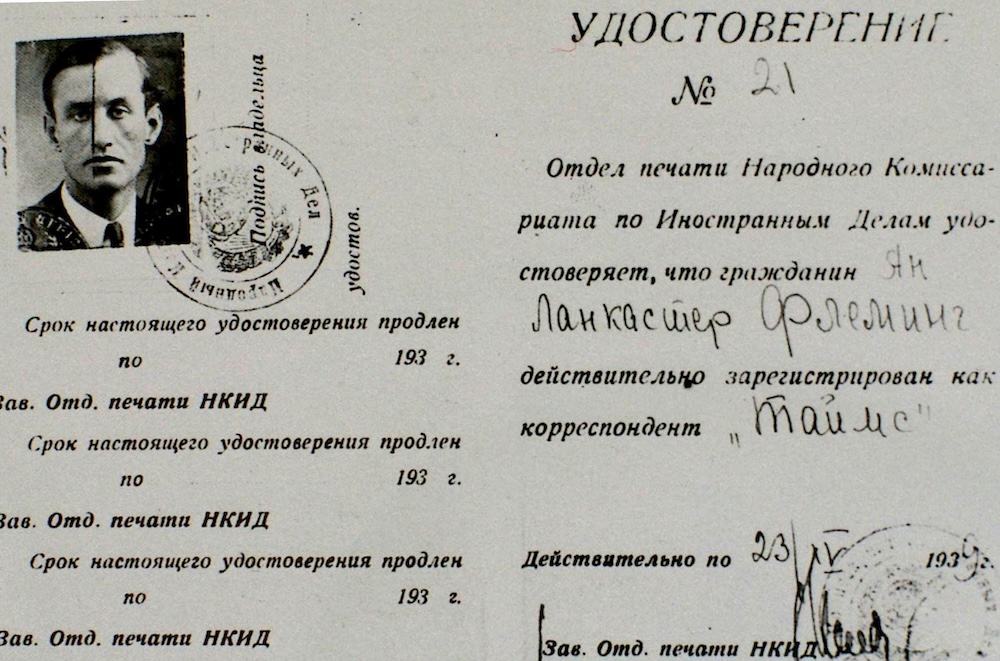 Подпись владельца
удостов.
Народный К
ранных Дел
Срок настоящего удостоверения продлен
по 193 г.
Зав. Отд. печати НКИД
Срок настоящего удостоверения продлен
по 193 г.
Зав. Отд. печати НКИД
Срок настоящего удостоверения продлен
по 193 г.
Зав. Отд. печати НКИД
УДОСТОВЕРЕНИЕ
№ 21
Отдел печати Народного Комисса-
риата по Иностранным Делам удо-
стоверяет, что гражданин Ян
Ланкастер Флеминг
действительно зарегистрирован как
корреспондент „Таймс"
Действительно по 23/IV 1939 г.
Зав. Отд. печати НКИД